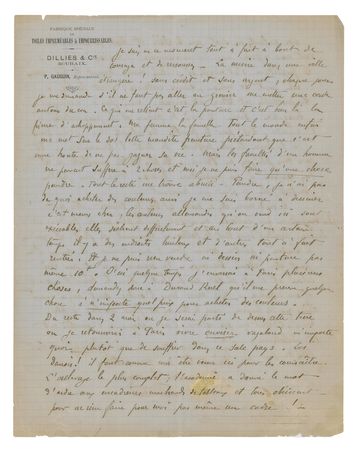 FABRIQUE SPÉCIALE
DE
TOILES IMPERMÉABLES & IMPOURRISSABLES
DILLIES & Cie
ROUBAIX
P. GAUGUIN, Représentant
Je suis en ce moment tout à fait à bout de
courage et de ressources — La misère dans une ville
étrangère ! sans crédit et sans argent, chaque jour
je me demande s'il ne faut pas aller au grenier me mettre une corde
autour du cou. Ce qui me retient c'est la peinture et c'est bien là la
pierre d'achoppement. Ma femme, la famille tout le monde enfin
me met sur le dos cette maudite peinture prétendant que c'est
une honte de ne pas gagner sa vie. Mais les facultés d'un homme
ne peuvent suffire à 2 choses et moi je ne puis faire qu'une chose
peindre. Tout le reste me trouve abruti. Peindre, je n'ai pas
de quoi acheter des couleurs aussi je me suis borné à dessiner
c'est moins cher, les couleurs allemandes qu'on vend ici sont
exécrables elles sèchent difficilement et au bout d'un certain
temps il y a des endroits huileux et d'autres tout à fait
rentrés. Et je ne puis rien vendre ni dessin ni peinture pas
même 10f. — J'ai quelque temps j'envoyais à Paris plusieurs
choses, demandez donc à Durand Ruel qu'il me prenne quelque
chose à n'importe quel prix pour acheter des couleurs.
Du reste dans 2 mois ou je serai parti de dessus cette terre
ou je retournerai à Paris vivre en ouvrier vagabond n'importe
quoi plutôt que de souffrir dans ce sale pays. Les
Danois ! Il faut comme moi être venu ici pour les connaître
l'esclavage le plus complet, l'académie a donné le mot
d'aide aux encadreurs marchands de tableaux et tous obéissent
pour ne rien faire pour moi pas même un cadre ! —